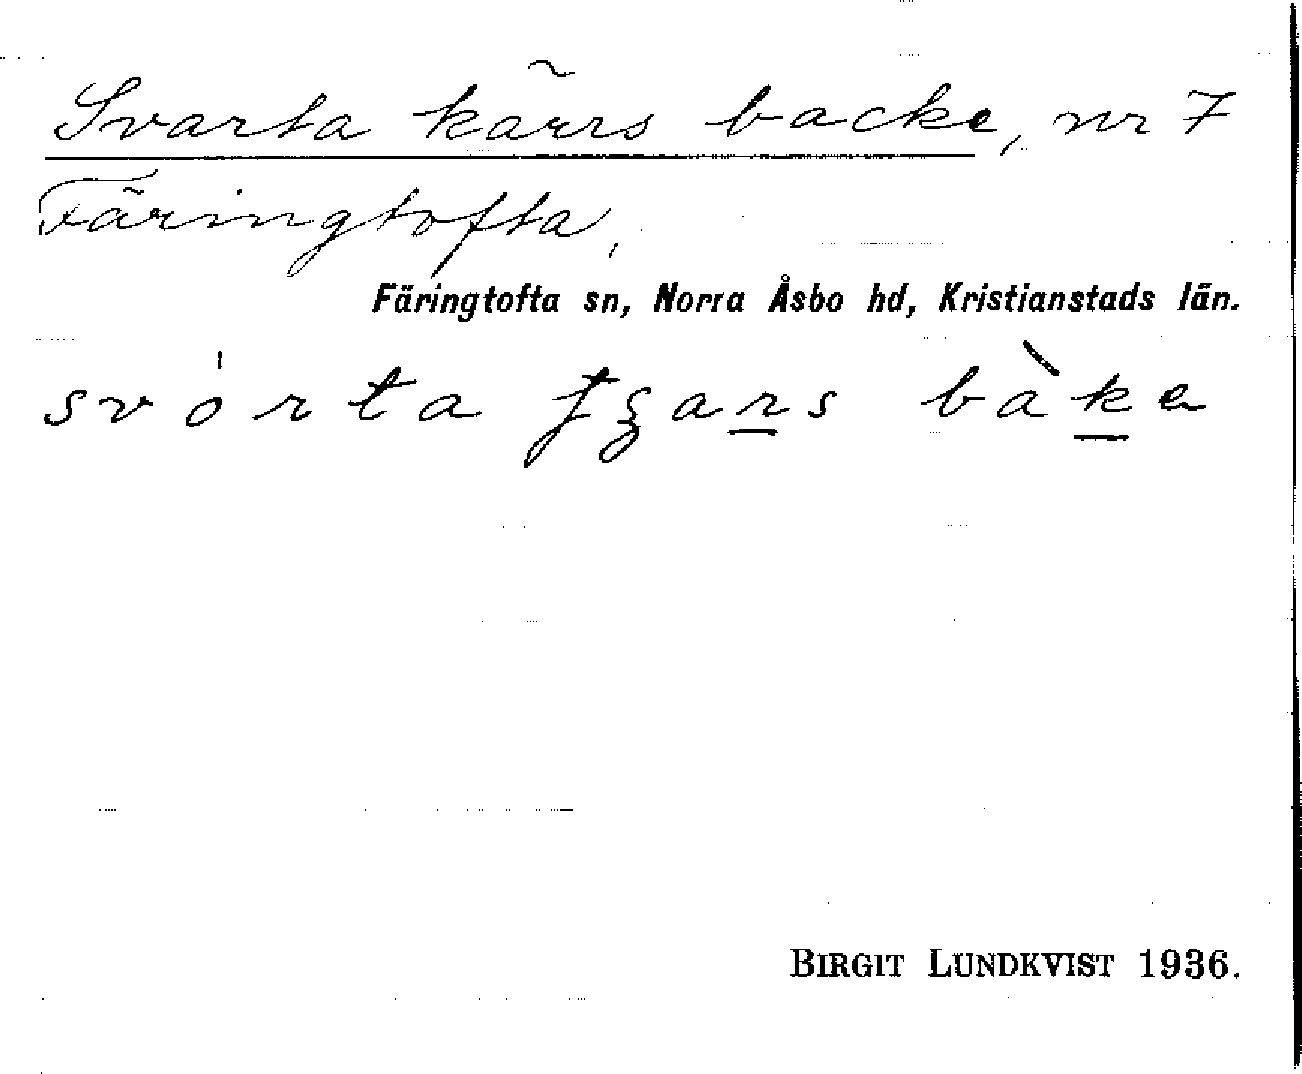 Svarta kärrs backe, nr 7
Färingtofta,
Färingtofta sn, Norra Åsbo hd, Kristianstads län.
svórta bàke
BIRGIT LUNDKVIST 1936.